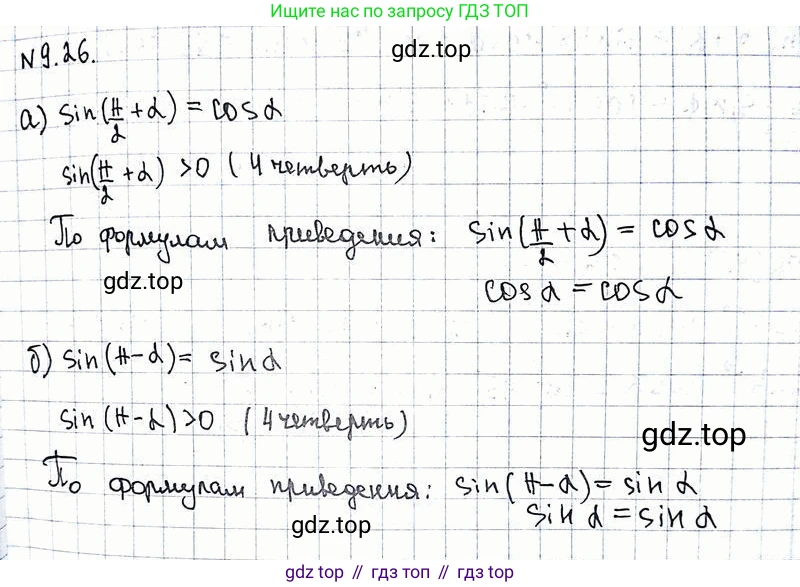 Ищите нас по запросу ГДЗ ТОП
№9.26.
gdz.top
а) sin(π/2 + α) = cos α
sin(π/2 + α) > 0 (4 четверть)
По формулам приведения: sin(π/2 + α) = cos α
gdz.top
cos α = cos α
б) sin(π - α) = sin α
sin(π - α) > 0 (4 четверть)
gdz.top
По формулам приведения: sin(π - α) = sin α
gdz.top
sin α = sin α
gdz.top // гдз топ // gdz.top